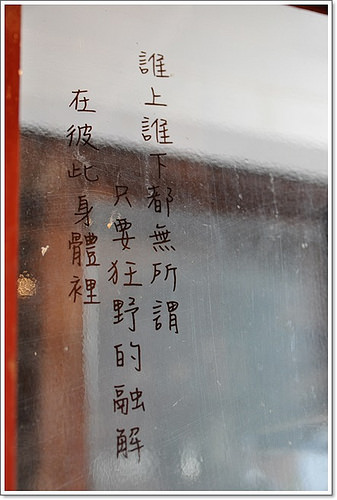 誰上誰下都無所謂
只要狂野的融解
在彼此身體裡